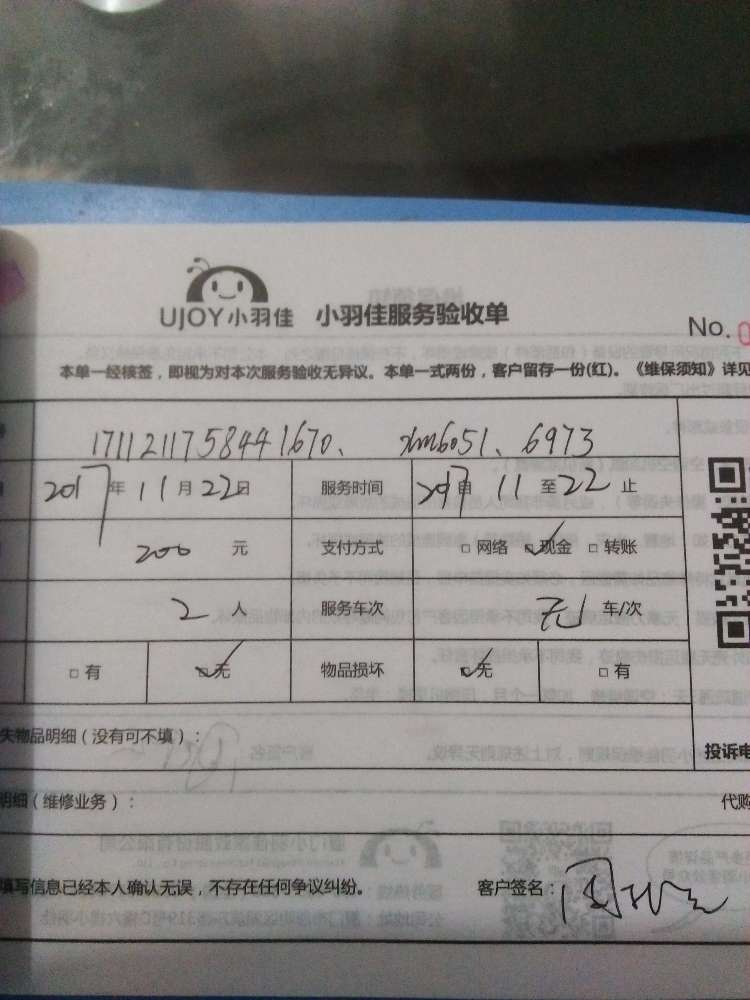 UJOY小羽佳 小羽佳服务验收单
No. 0
本单一经核签，即视为对本次服务验收无异议。本单一式两份，客户留存一份(红)。《维保须知》详见
1711211758441670、 xm6051、6973
2017年11月22日 服务时间 2017自11至22止
200元 支付方式 □网络 ☑现金 □转账
2人 服务车次 无 车/次
□有 ☑无 物品损坏 ☑无 □有
失物品明细（没有可不填）：
投诉电
明细（维修业务）：
代购
填写信息已经本人确认无误，不存在任何争议纠纷。 客户签名：